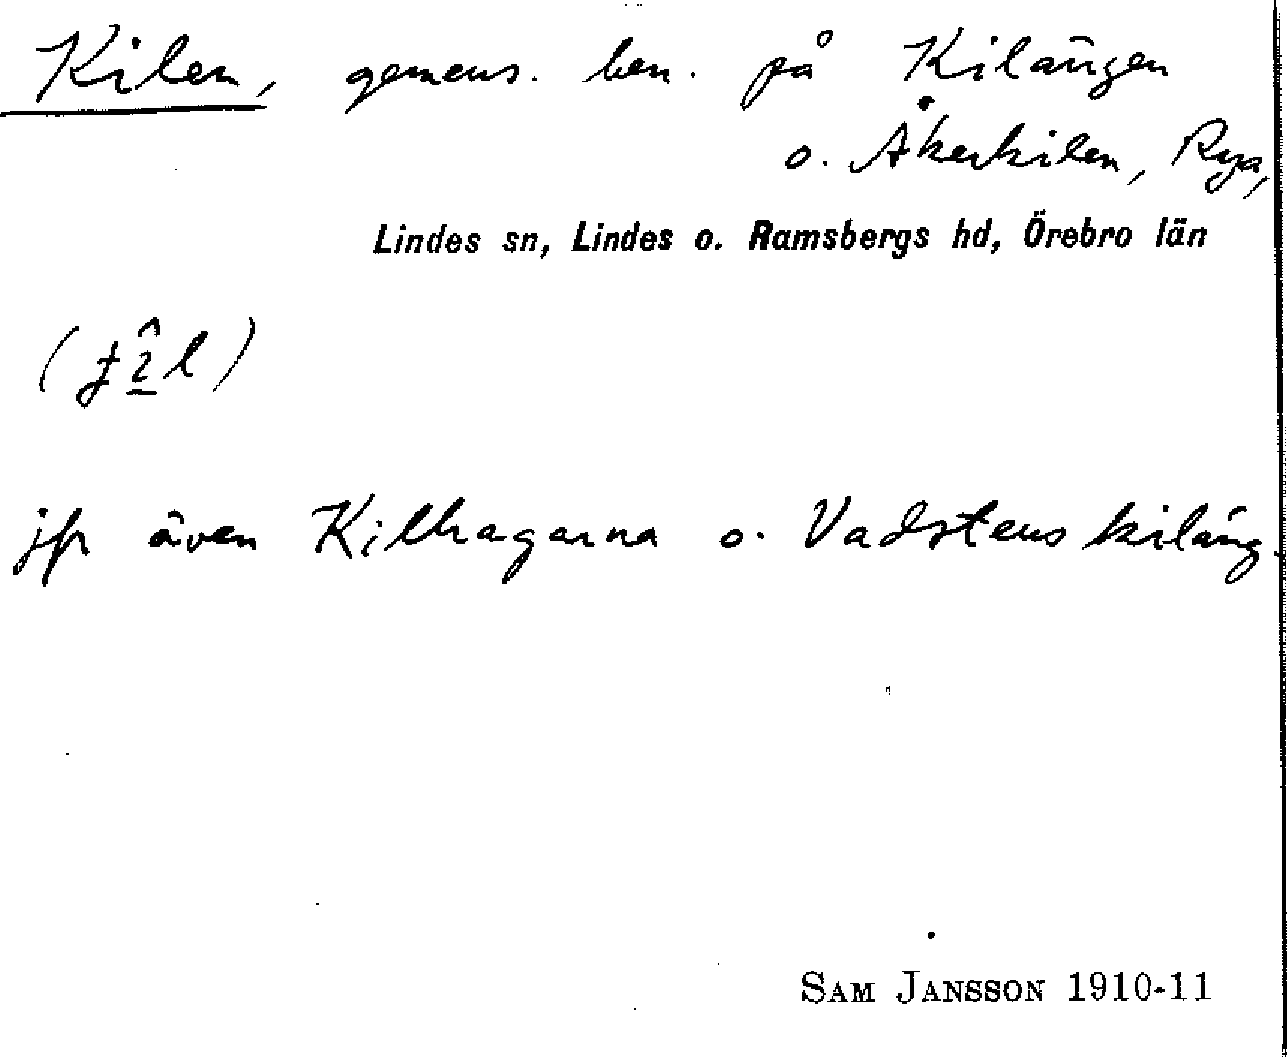 Kilen, gemens. ben. på Kilängen
o. Åkerkilen, Rya,
Lindes sn, Lindes o. Ramsbergs hd, Örebro län
jfr även Kilhagarna o. Vadstenskiläng.
SAM JANSSON 1910-11